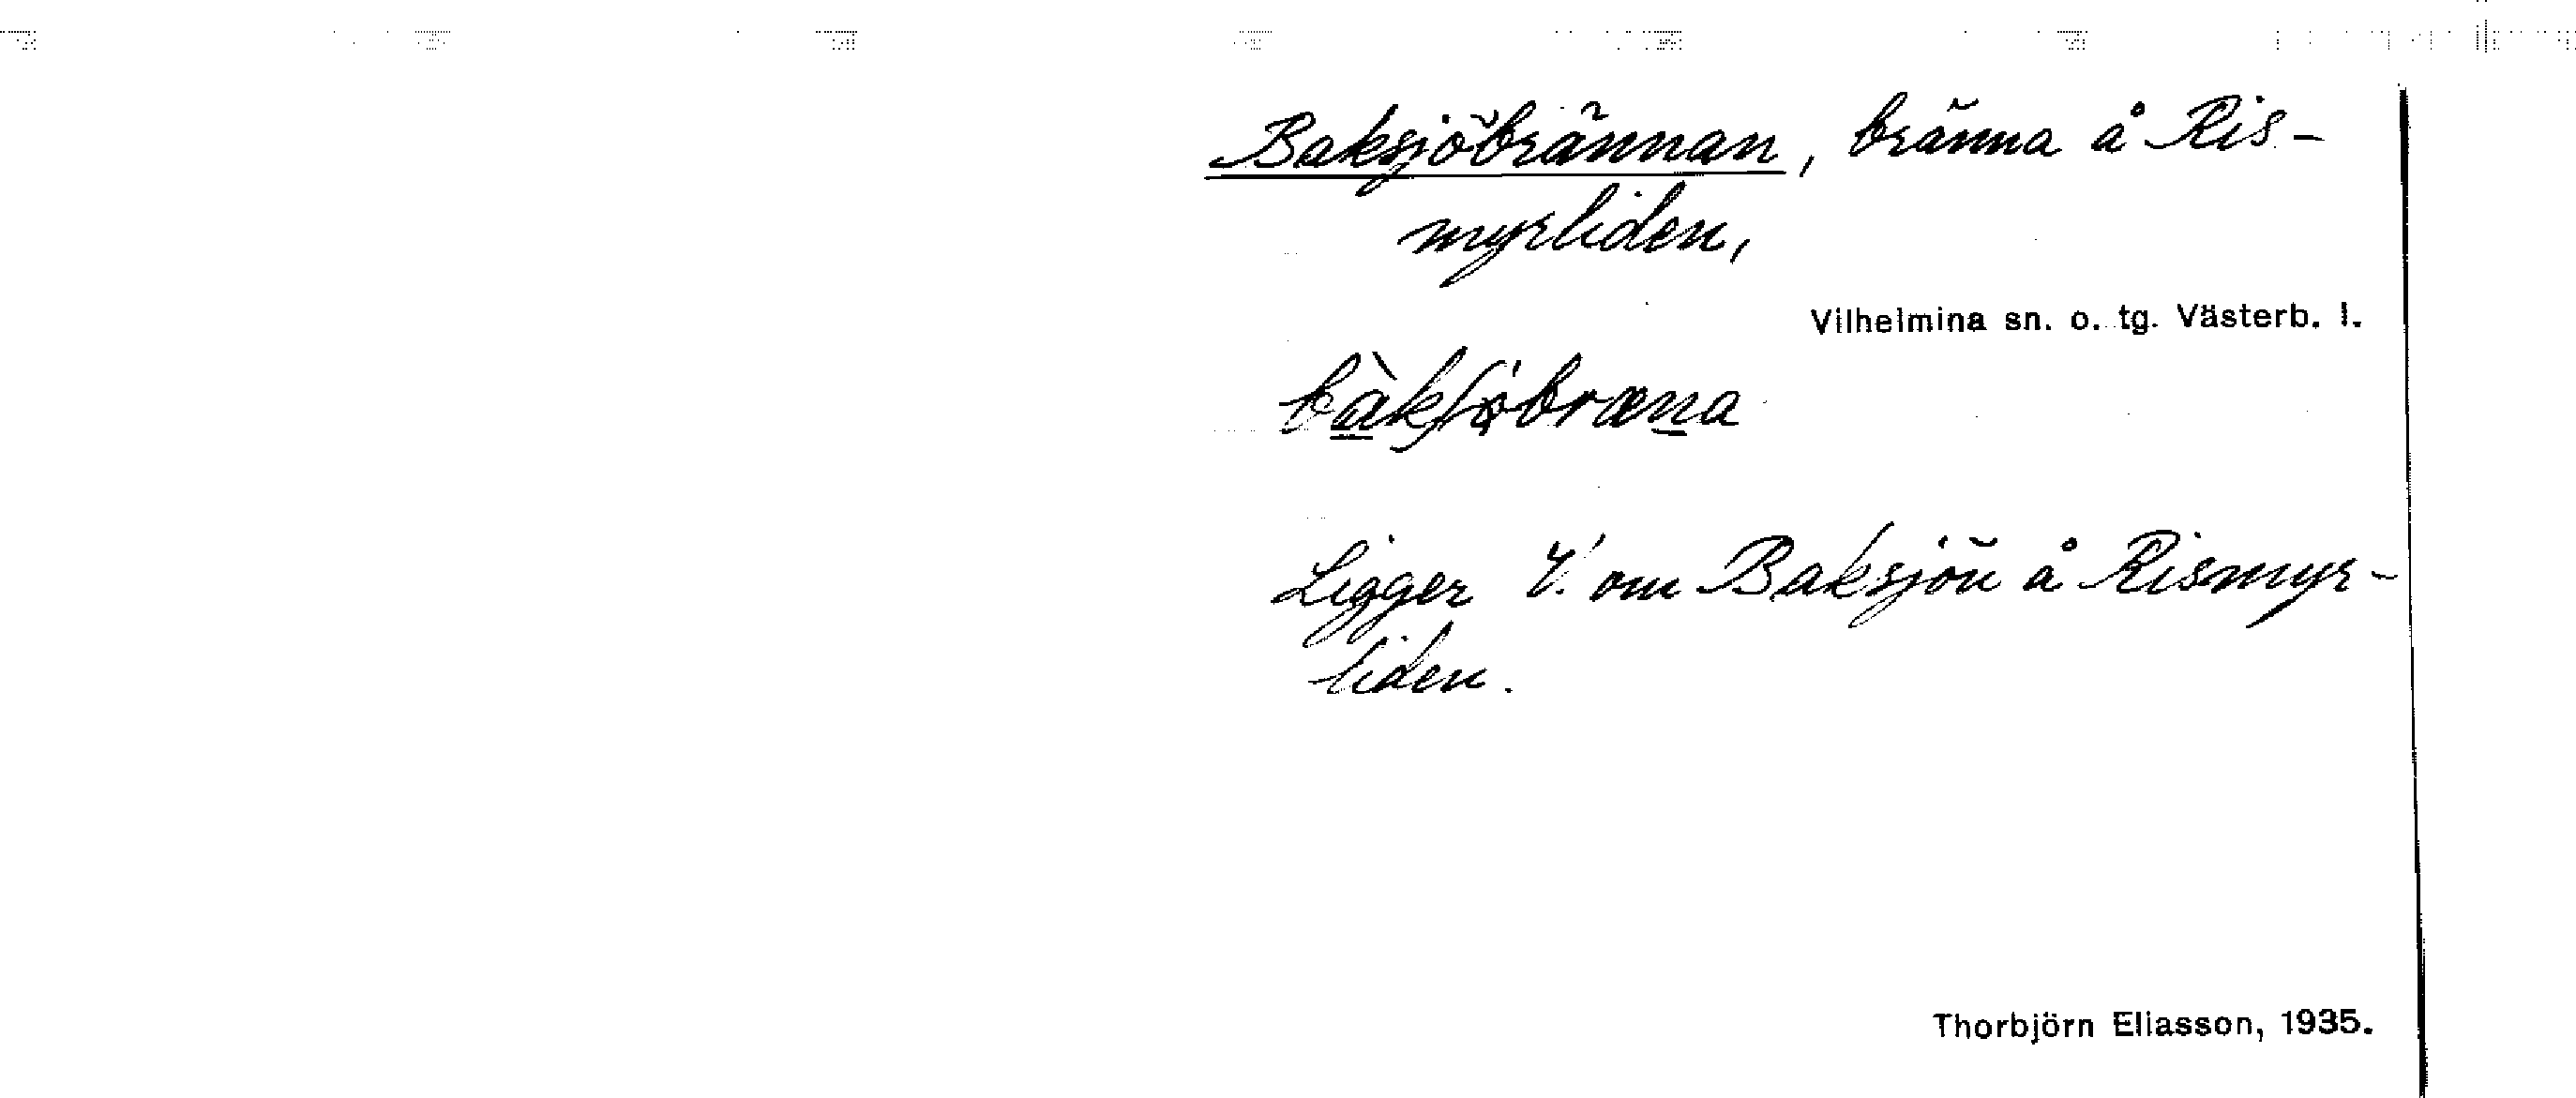 Baksjöbrännan, bränna å Ris-
myrliden,
Vilhelmina sn. o. tg. Västerb. l.
bàkʃǿbræna
Ligger V. om Baksjön å Rismyr-
liden.
Thorbjörn Eliasson, 1935.